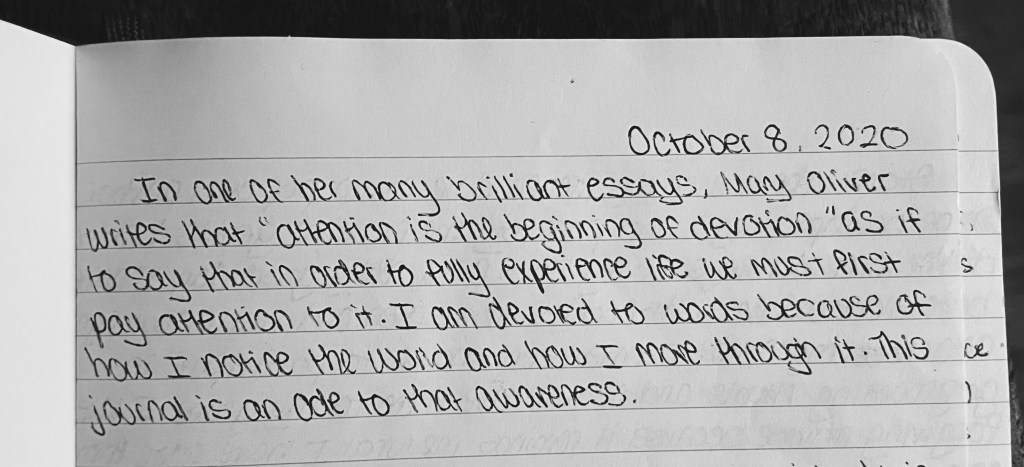 October 8, 2020
In one of her many brilliant essays, Mary Oliver
writes that "attention is the beginning of devotion" as if
to say that in order to fully experience life we must first
pay attention to it. I am devoted to words because of
how I notice the world and how I move through it. This
journal is an ode to that awareness.
s
ce.